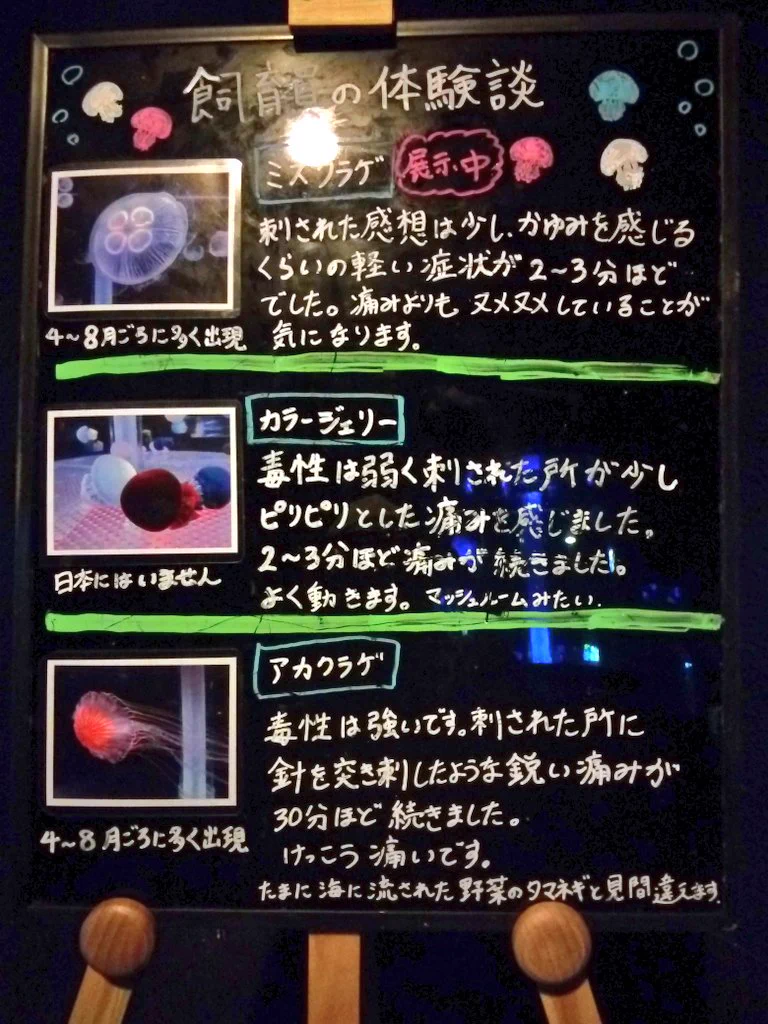 飼育員の体験談
ミズクラゲ 展示中
刺された感想は少し、かゆみを感じる
くらいの軽い症状が2~3分ほど
でした。痛みよりも、ヌメヌメしていることが
気になります。
4~8月ごろに多く出現
カラージェリー
毒性は弱く刺された所が少し
ピリピリとした痛みを感じました。
2~3分ほど痛みが続きました。
よく動きます。マッシュルームみたい.
日本にはいません
アカクラゲ
毒性は強いです。刺された所に
針を突き刺したような鋭い痛みが
30分ほど続きました。
けっこう痛いです。
たまに海に流された野菜のタマネギと見間違えます.
4~8月ごろに多く出現